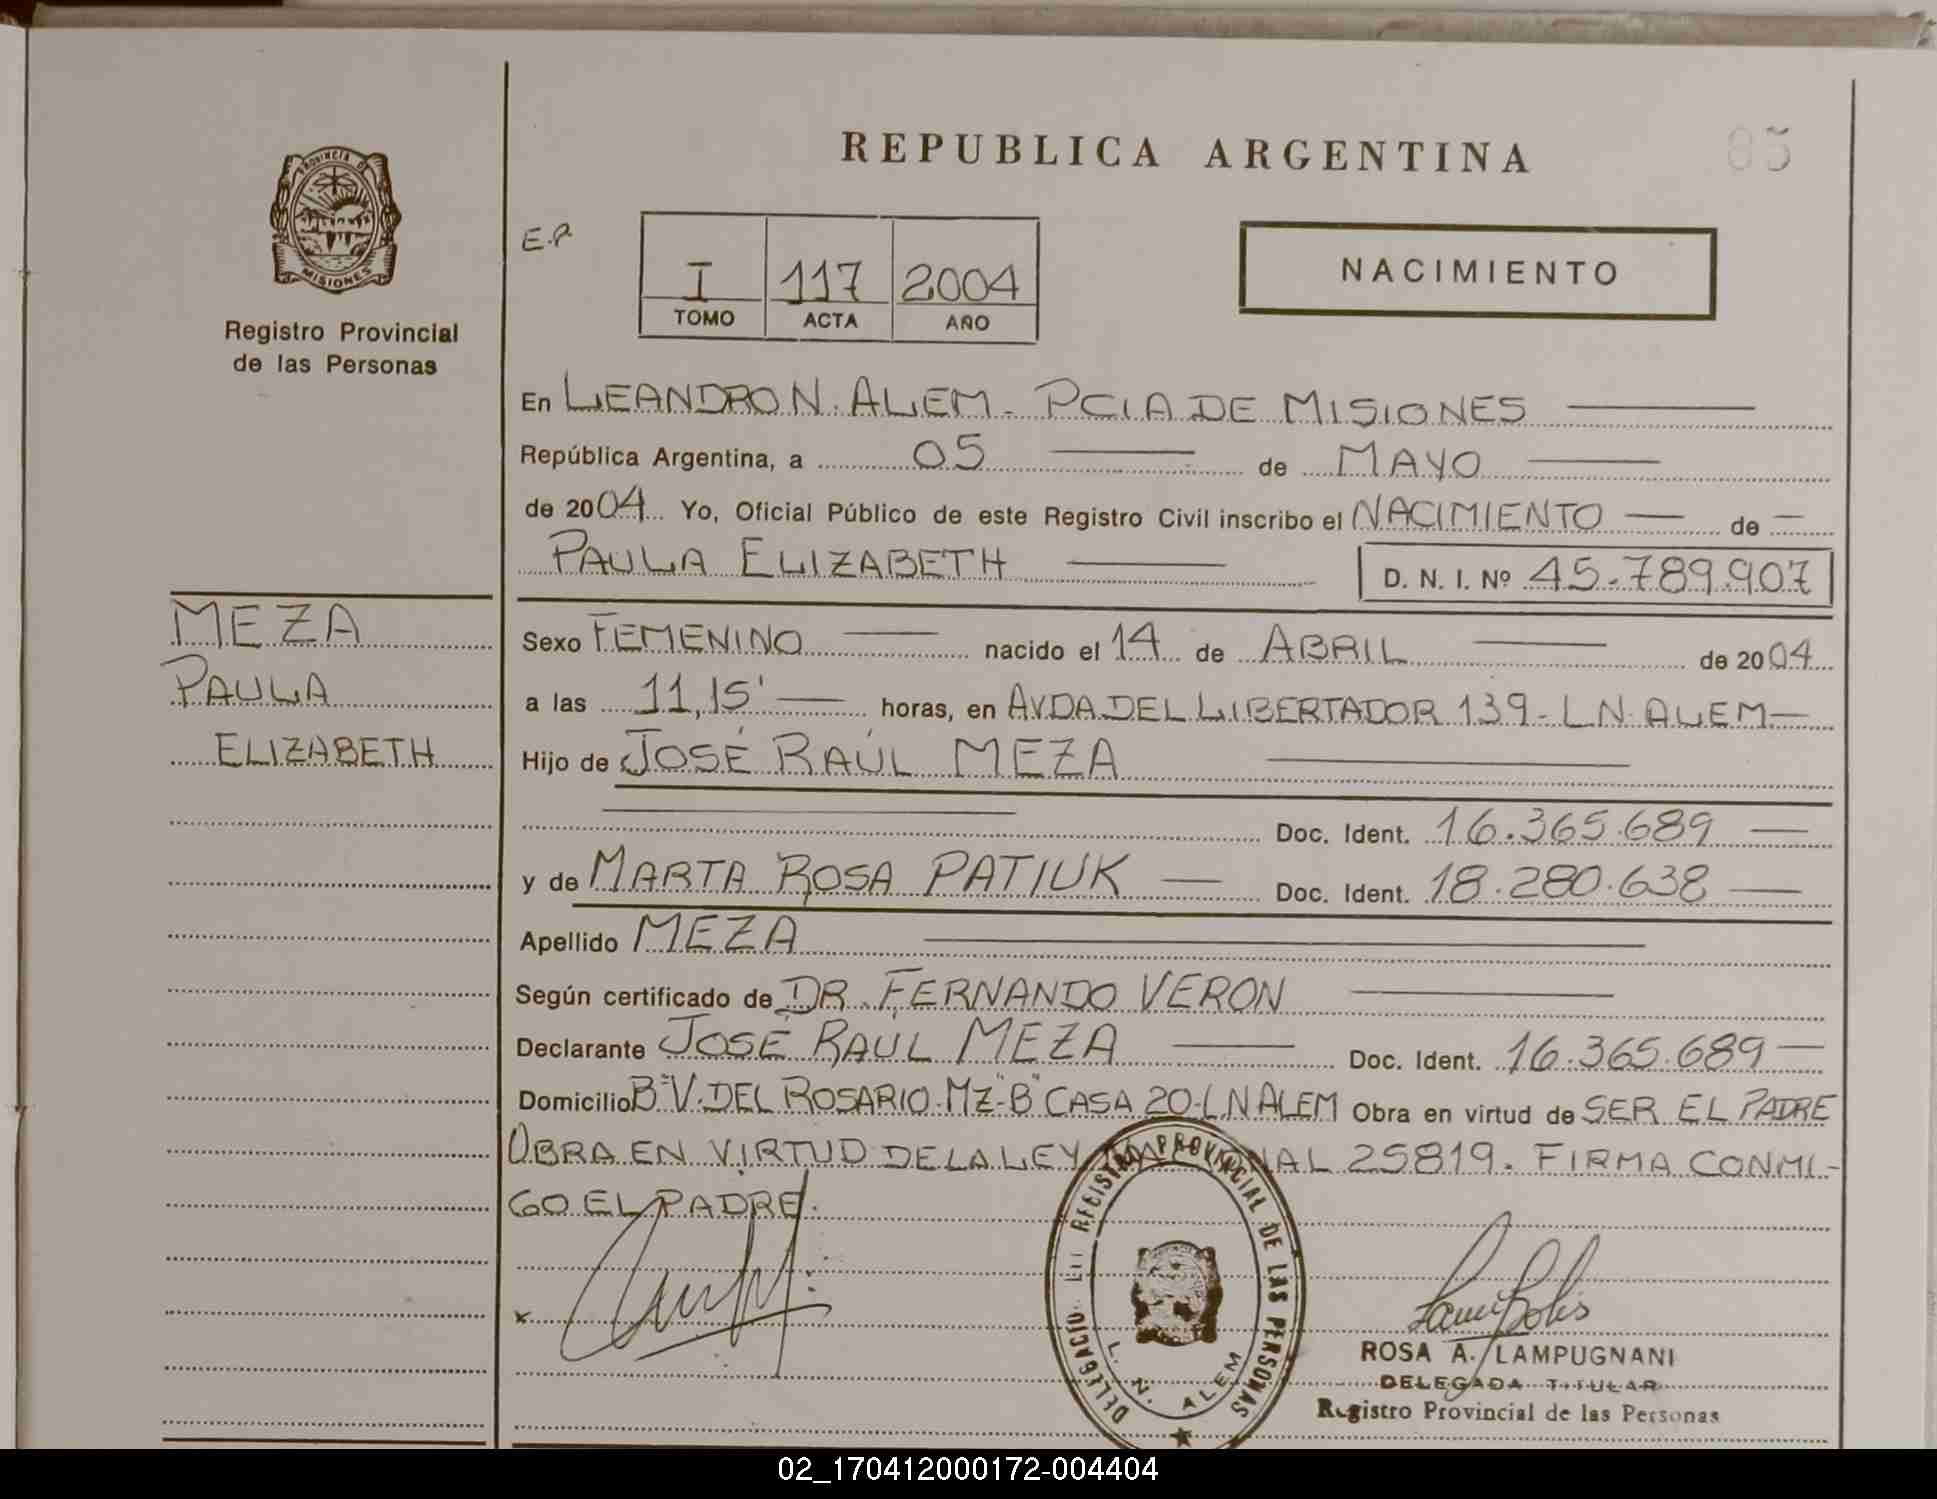 REPUBLICA ARGENTINA
05
PROVINCIA DE
MISIONES
Registro Provincial
de las Personas
E.P
I 117 2004
TOMO ACTA AÑO
NACIMIENTO
En LEANDRO N. ALEM - PCIA DE MISIONES
República Argentina, a 05 de MAYO
de 2004 Yo, Oficial Público de este Registro Civil inscribo el NACIMIENTO de
PAULA ELIZABETH D. N. I. Nº 45.789.907
MEZA
PAULA
ELIZABETH
Sexo FEMENINO nacido el 14 de ABRIL de 2004
a las 11,15' horas, en AVDA DEL LIBERTADOR 139 - L N. ALEM
Hijo de JOSÉ RAÚL MEZA
Doc. Ident. 16.365.689
y de MARTA ROSA PATIUK Doc. Ident. 18.280.638
Apellido MEZA
Según certificado de DR. FERNANDO VERON
Declarante JOSÉ RAÚL MEZA Doc. Ident. 16.365.689
Domicilio B° V. DEL ROSARIO - MZ - "B" CASA 20 - L N ALEM Obra en virtud de SER EL PADRE
OBRA EN VIRTUD DE LA LEY NACIONAL 25819. FIRMA CONMI-
GO EL PADRE.
REGISTRO PROVINCIAL DE LAS PERSONAS
L. N. ALEM
ROSA A. LAMPUGNANI
DELEGADA TITULAR
Registro Provincial de las Personas
02_170412000172-004404